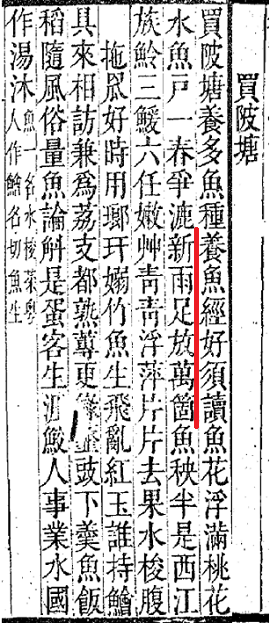 買陂塘
買陂塘養多魚種養魚經好須讀魚花浮滿桃花
水魚戸一春爭漉新雨足放萬箇魚秧半是西江
族魿三鰀六任嫩艸青青浮萍片片去果水梭腹
拖罛好時用瑯玕嫋竹魚生飛亂紅玉誰持鱠
具來相訪兼爲荔支都熟蓴更豉下羹魚飯
稻隨風俗量魚論斛是蛋客生涯鮫人事業水國
作湯沐魚一名水梭菜粵
人作鱠名切魚生